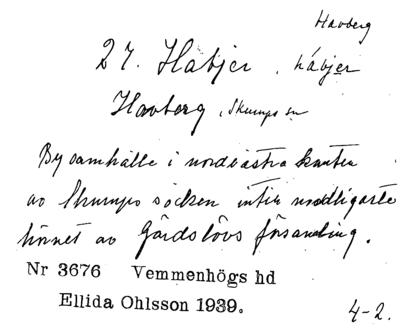 Havberg
27. Habjer, hábjer
Havberg, Skurups sn
By samhälle i nordvästra kanten
av Skurups socken intill nordligaste
hörnet av Gärdslövs församling.
Nr 3676 Vemmenhögs hd
Ellida Ohlsson 1939.
4-2.